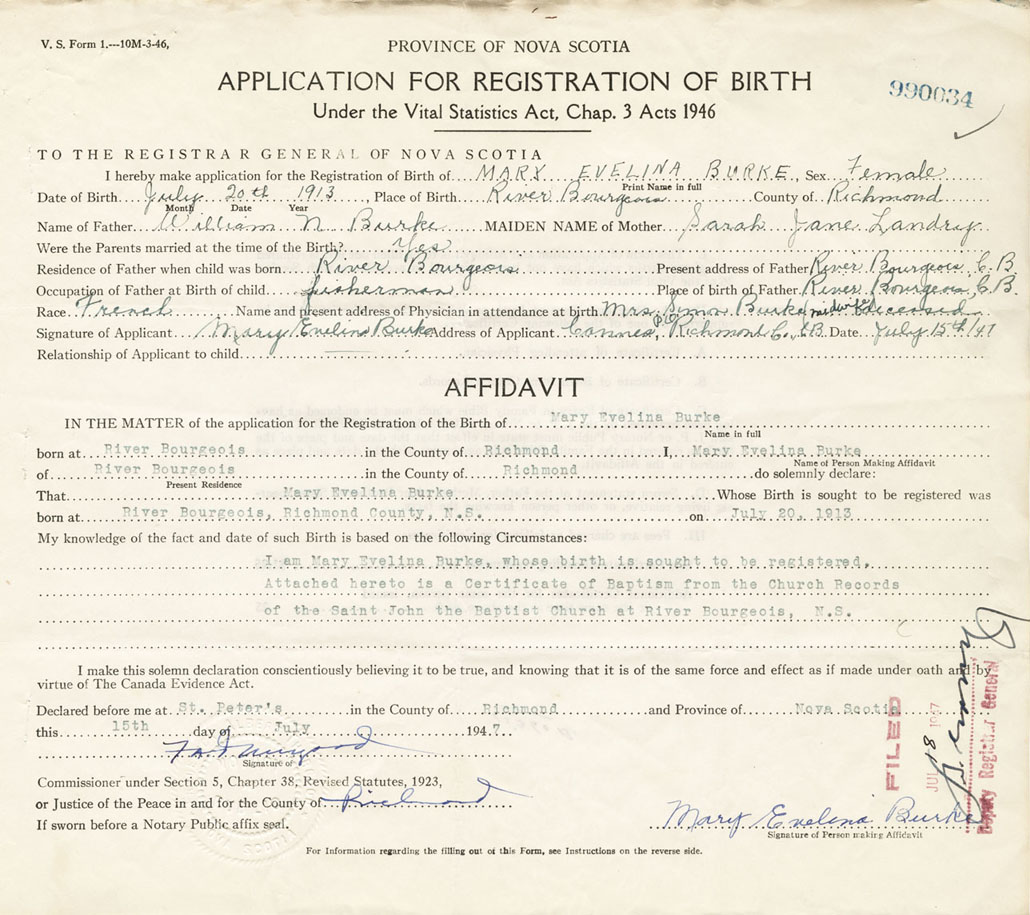 V. S. Form 1.---10M-3-46,
PROVINCE OF NOVA SCOTIA
APPLICATION FOR REGISTRATION OF BIRTH
990034
Under the Vital Statistics Act, Chap. 3 Acts 1946
TO THE REGISTRAR GENERAL OF NOVA SCOTIA
I hereby make application for the Registration of Birth of MARY EVELINA BURKE Sex Female
Print Name in full
Date of Birth July 20th 1913, Place of Birth River Bourgeois County of Richmond
Month Date Year
Name of Father William N Burke MAIDEN NAME of Mother Sarah Jane Landry
Were the Parents married at the time of the Birth? Yes
Residence of Father when child was born River Bourgeois Present address of Father River Bourgeois, C.B.
Occupation of Father at Birth of child fisherman Place of birth of Father River Bourgeois, C.B.
Race French Name and present address of Physician in attendance at birth Mrs. Simon Burke, midwife deceased
Signature of Applicant Mary Evelina Burke Address of Applicant P.O. Richmond C., C.B. Date July 15th/47
Relationship of Applicant to child
AFFIDAVIT
IN THE MATTER of the application for the Registration of the Birth of Mary Evelina Burke
Name in full
born at River Bourgeois in the County of Richmond I, Mary Evelina Burke
Name of Person Making Affidavit
of River Bourgeois in the County of Richmond do solemnly declare:
Present Residence
That Mary Evelina Burke Whose Birth is sought to be registered was
born at River Bourgeois, Richmond County, N.S. on July 20, 1913
My knowledge of the fact and date of such Birth is based on the following Circumstances:
I am Mary Evelina Burke, whose birth is sought to be registered.
Attached hereto is a Certificate of Baptism from the Church Records
of the Saint John the Baptist Church at River Bourgeois, N.S.
I make this solemn declaration conscientiously believing it to be true, and knowing that it is of the same force and effect as if made under oath and by
virtue of The Canada Evidence Act.
Declared before me at St. Peter's in the County of Richmond and Province of Nova Scotia
this 15th day of July 1947.
Signature of
Commissioner under Section 5, Chapter 38, Revised Statutes, 1923,
or Justice of the Peace in and for the County of Richmond
If sworn before a Notary Public affix seal.
Mary Evelina Burke
Signature of Person making Affidavit
For Information regarding the filling out of this Form, see Instructions on the reverse side.
FILED
JUL 18 1947
Deputy Registrar General